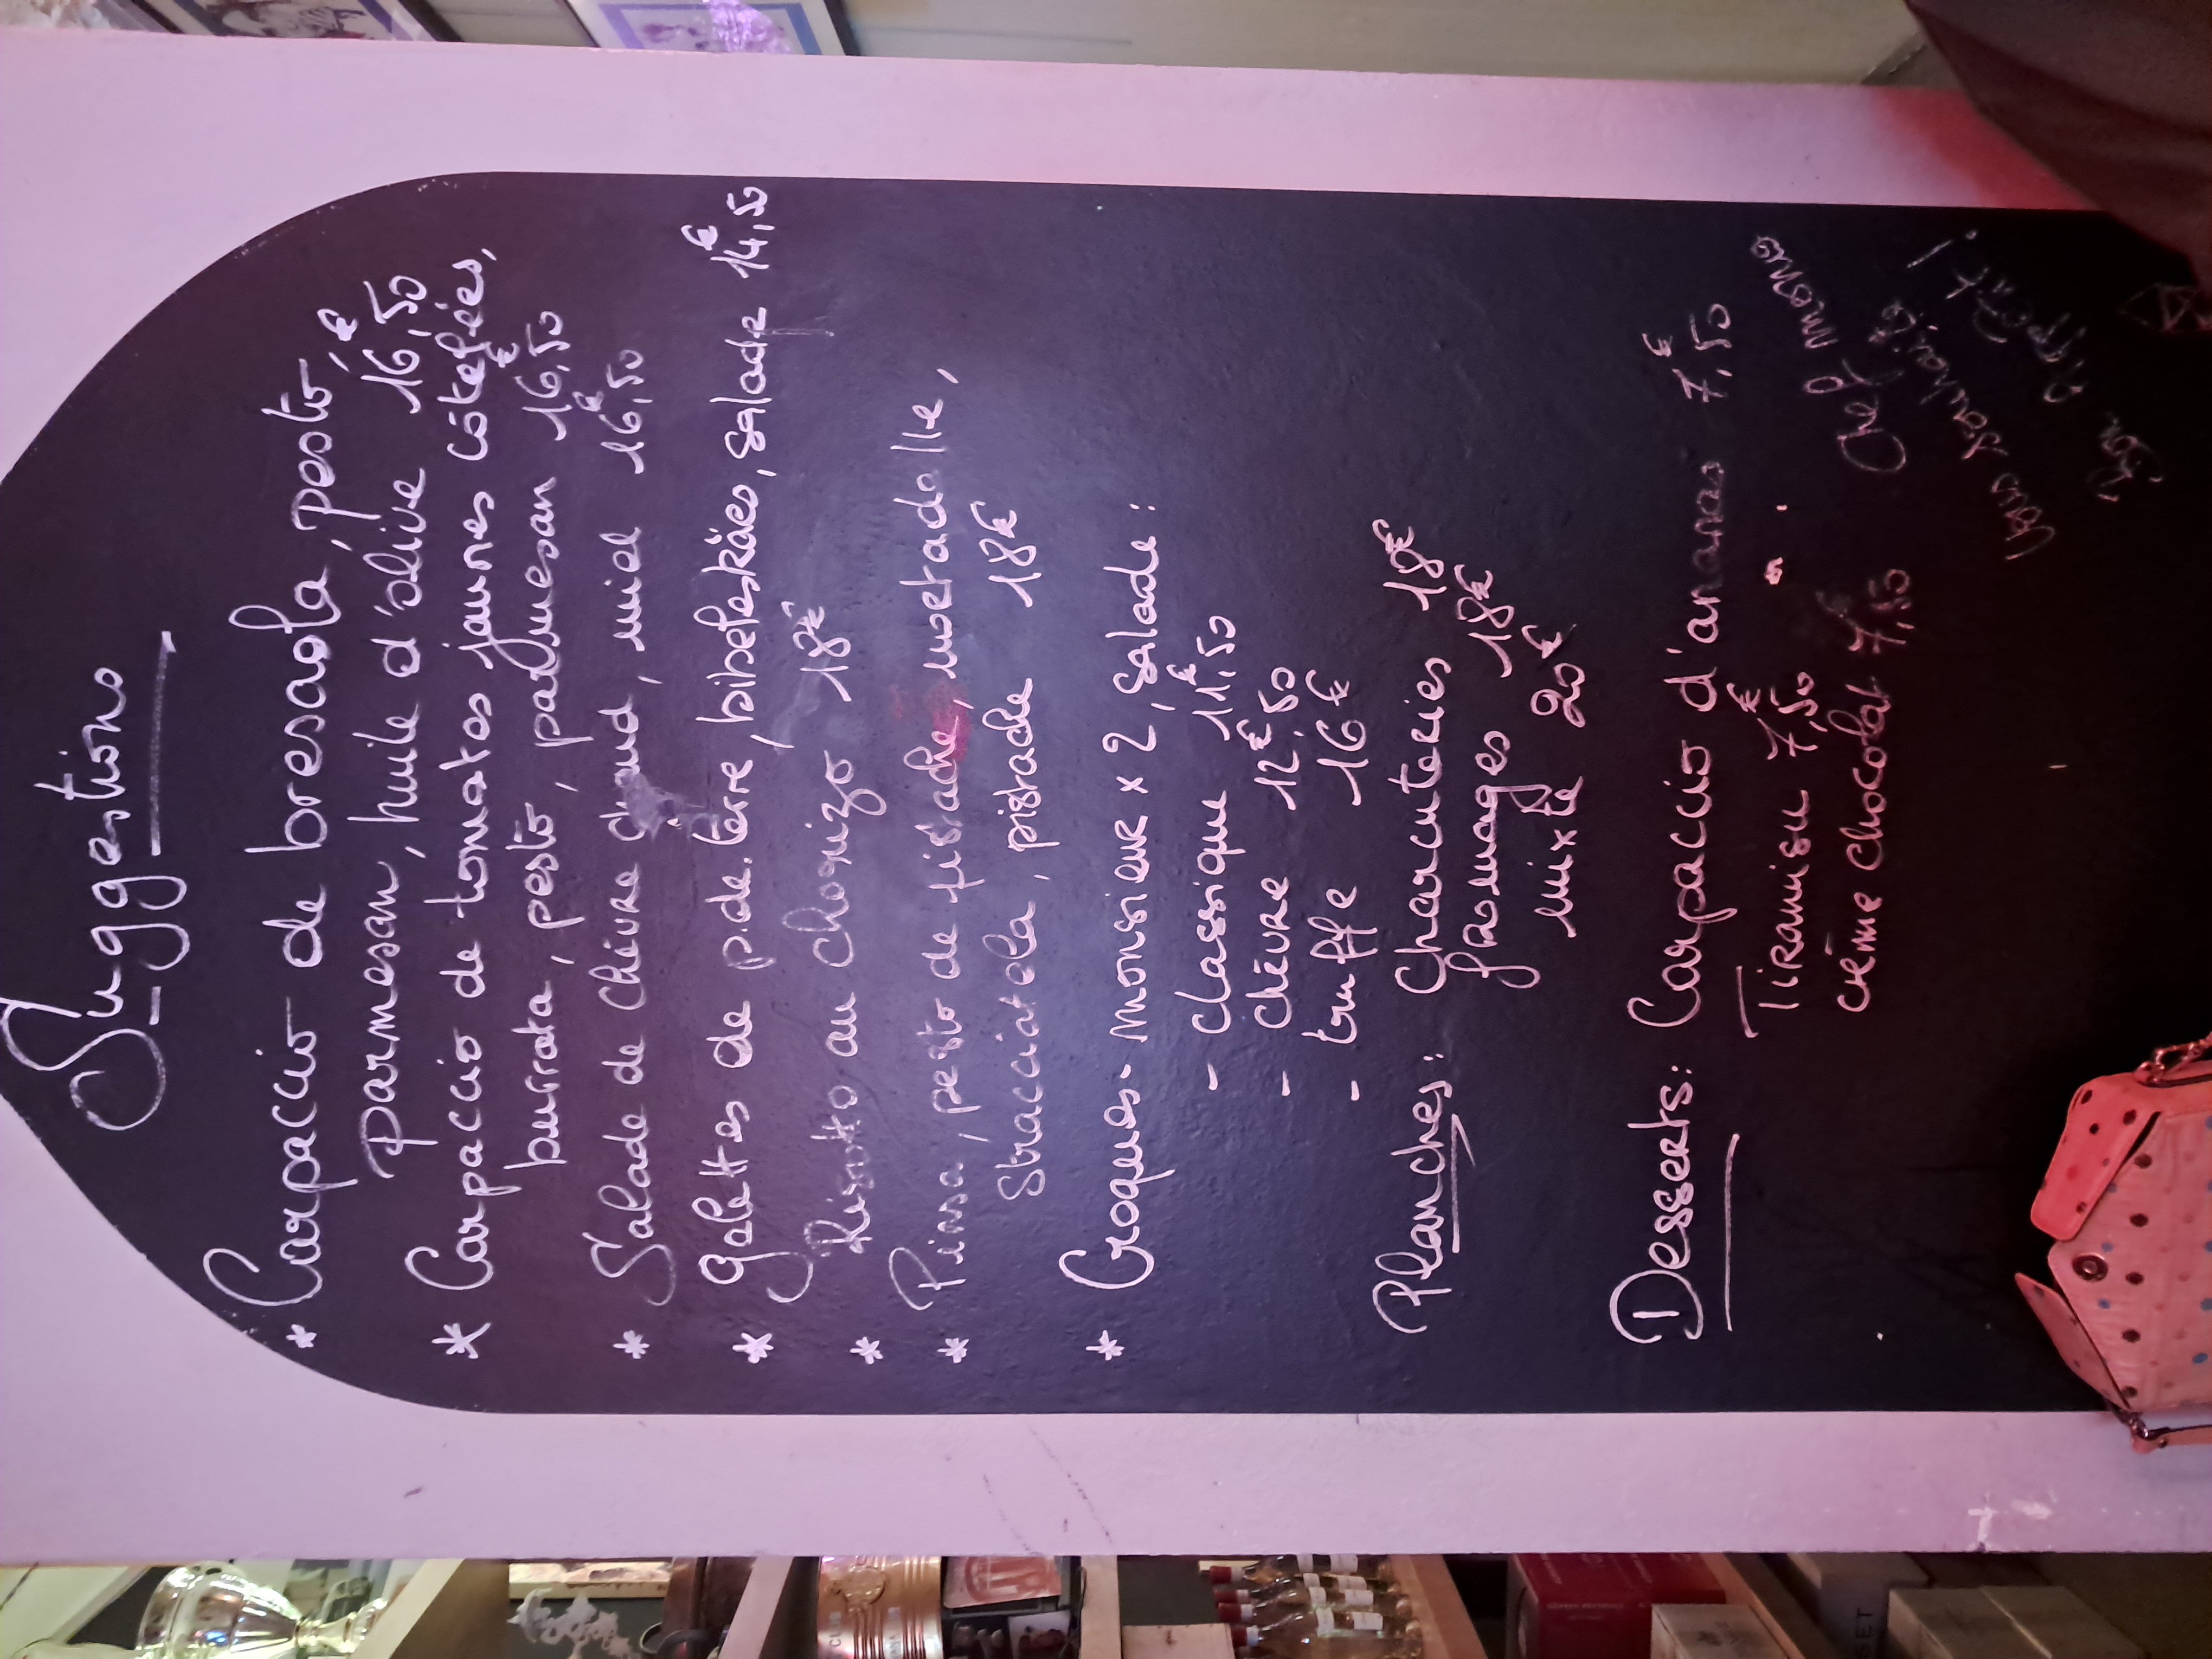 Suggestions
* Carpaccio de bresaola, pesto,
parmesan, huile d'olive 16,50€
* Carpaccio de tomates jaunes côtelées,
burrata, pesto, parmesan 16,50€
* Salade de chèvre chaud, miel 16,50€
* galettes de p.de.terre, bibeleskäes, salade 14,50€
* Risotto au chorizo 18€
* Pinsa, pesto de pistache, mortadelle,
Stracciatela, pistache 18€
* Croques-monsieur x 2, salade :
- classique 11,50€
- chèvre 12,50€
- truffe 16€
Planches : Charcuteries 18€
fromages 18€
mixte 20€
Desserts : Carpaccio d'ananas 7,50€
Tiramisu 7,50€
crème chocolat 7,50€
Chef momo
Vous souhaite
Bon Appétit !
SET